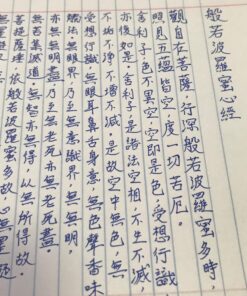 般若波羅蜜心經
觀自在菩薩行深般若波羅蜜多時，
照見五蘊皆空，度一切苦厄。
舍利子色不異空，空即是色，受想行識
亦復如是。舍利子是諸法空相，不生不滅，
不垢不淨，不增不減，是故空中無色，無
受想行識，無眼耳鼻舌身意，無色聲香味
觸法，無眼界乃至無意識界，無無明，
亦無無明盡乃至無老死亦無老死盡。
無苦集滅道，無智亦無得，以無所得故。
菩提薩埵，依般若波羅蜜多故，心無罣